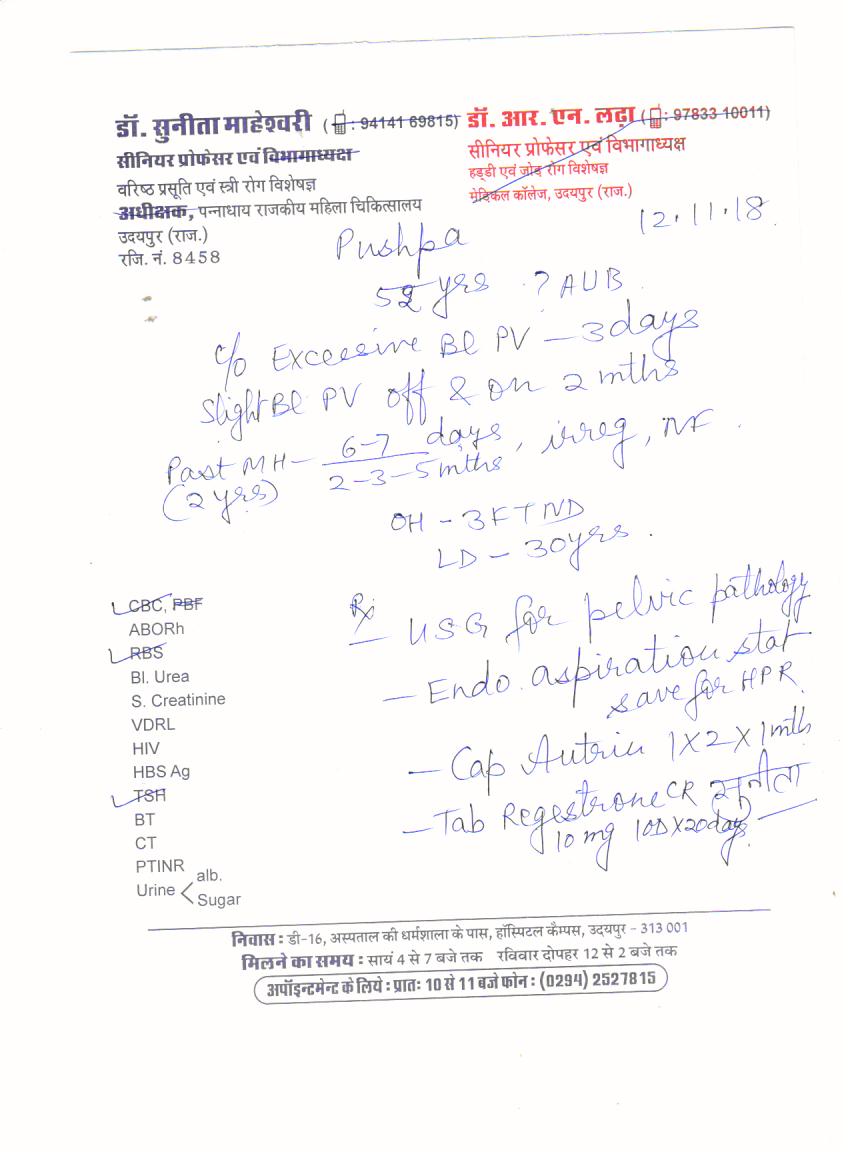 डॉ. सुनीता माहेश्वरी (: 94141 69815)
सीनियर प्रोफेसर एवं विभागाध्यक्ष
वरिष्ठ प्रसूति एवं स्त्री रोग विशेषज्ञ
अधीक्षक, पन्नाधाय राजकीय महिला चिकित्सालय
उदयपुर (राज.)
रजि. नं. 8458
डॉ. आर. एन. लढ़ा (: 97833 10011)
सीनियर प्रोफेसर एवं विभागाध्यक्ष
हड्डी एवं जोड़ रोग विशेषज्ञ
मेडिकल कॉलेज, उदयपुर (राज.)
12.11.18
Pushpa
52 yrs ? AUB
c/o Excessive Bl PV - 3 days
Slight Bl PV off & on 2 mths
Past MH - 6-7 days, irreg, NF
2-3-5 mths
(2 yrs)
OH - 3 FTND
LD - 30 yrs.
CBC, PBF
ABORh
RBS
Bl. Urea
S. Creatinine
VDRL
HIV
HBS Ag
TSH
BT
CT
PTINR
Urine < alb.
Sugar
Rx
- USG for pelvic pathology
- Endo. aspiration stat
save for HPR
- Cap Autrin 1 X 2 X 1 mth
- Tab Regestrone CR सुनीता
10 mg 1OD X 20 days
निवास : डी-16, अस्पताल की धर्मशाला के पास, हॉस्पिटल कैम्पस, उदयपुर - 313 001
मिलने का समय : सायं 4 से 7 बजे तक रविवार दोपहर 12 से 2 बजे तक
अपॉइन्टमेन्ट के लिये : प्रातः 10 से 11 बजे फोन : (0294) 2527815